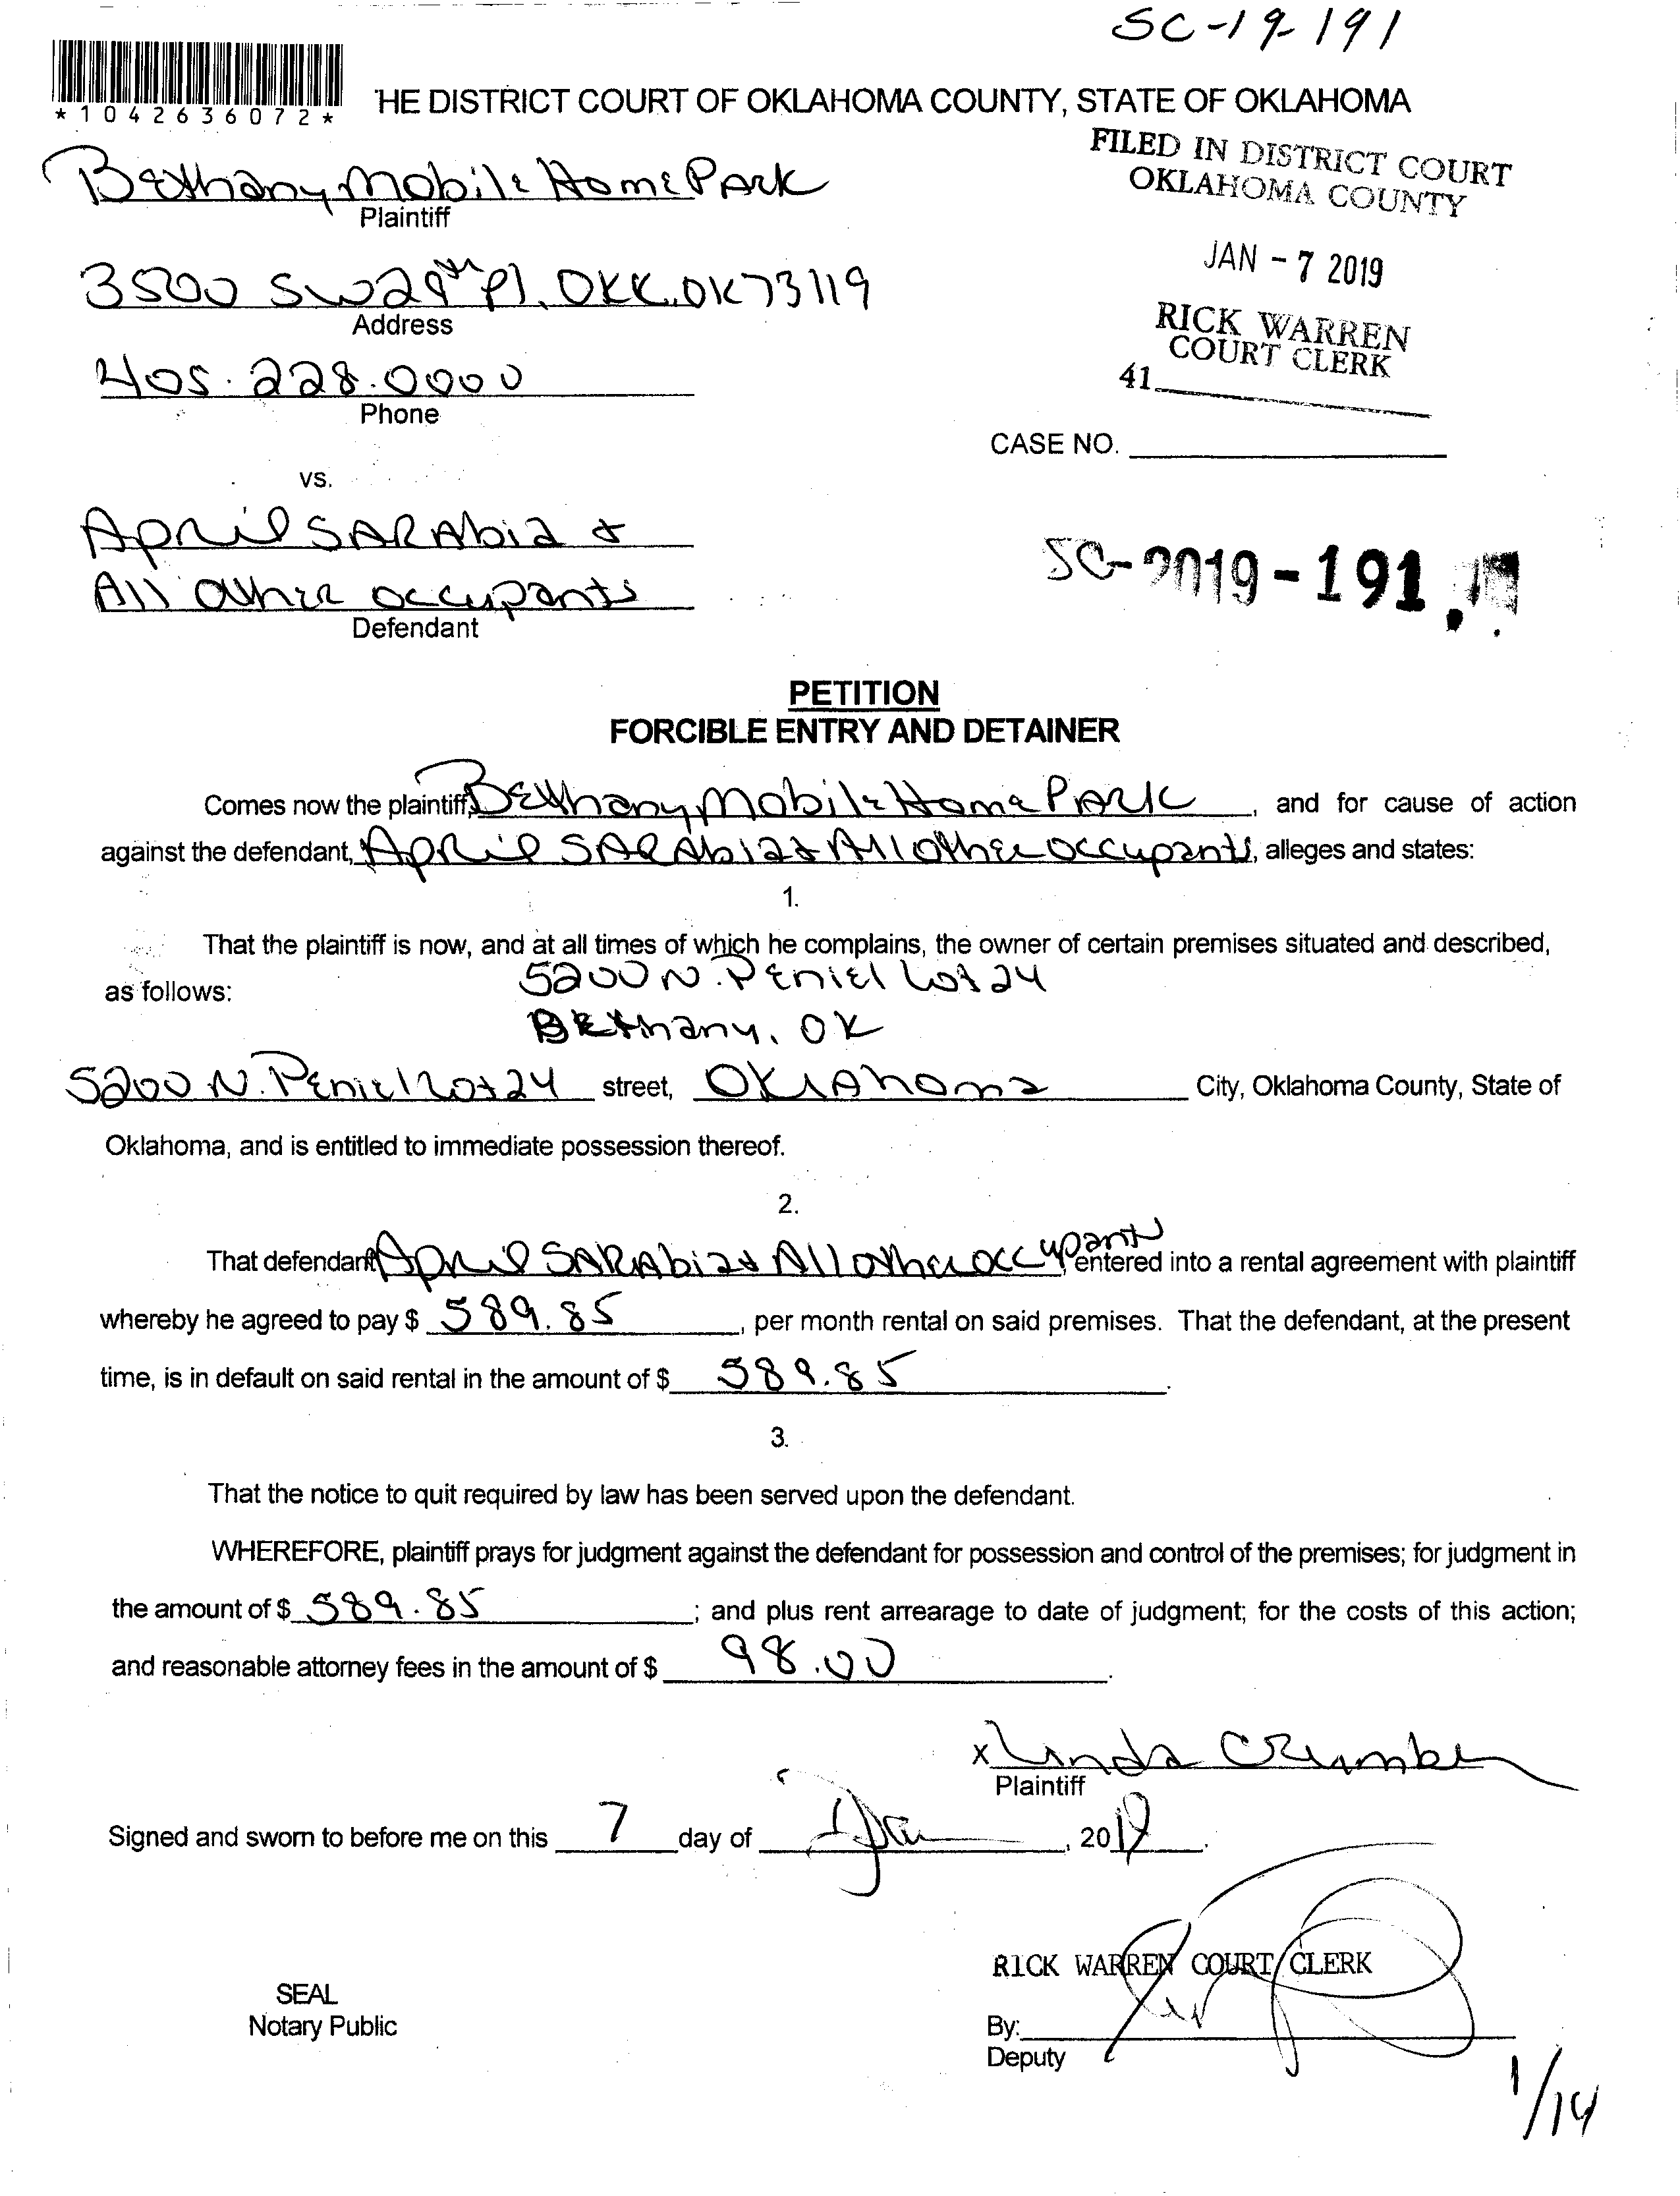 SC-19-191
*1042636072*
HE DISTRICT COURT OF OKLAHOMA COUNTY, STATE OF OKLAHOMA
FILED IN DISTRICT COURT
OKLAHOMA COUNTY
Bethany Mobile Home Park
Plaintiff
JAN - 7 2019
3500 SW 29th Pl. OKC, OK 73119
Address
RICK WARREN
COURT CLERK
41
405.228.0000
Phone
CASE NO.
vs.
April SARAbia &
All other occupants
Defendant
SC-2019-191
PETITION
FORCIBLE ENTRY AND DETAINER
Comes now the plaintiff, Bethany Mobile Home Park, and for cause of action
against the defendant, April SARAbia & All other occupants, alleges and states:
1.
That the plaintiff is now, and at all times of which he complains, the owner of certain premises situated and described,
as follows: 5200 N. Peniel Lot 24
Bethany, OK
5200 N. Peniel Lot 24 street, Oklahoma City, Oklahoma County, State of
Oklahoma, and is entitled to immediate possession thereof.
2.
That defendant April SARAbia & All other occupants, entered into a rental agreement with plaintiff
whereby he agreed to pay $ 589.85, per month rental on said premises. That the defendant, at the present
time, is in default on said rental in the amount of $ 589.85.
3.
That the notice to quit required by law has been served upon the defendant.
WHEREFORE, plaintiff prays for judgment against the defendant for possession and control of the premises; for judgment in
the amount of $ 589.85; and plus rent arrearage to date of judgment; for the costs of this action;
and reasonable attorney fees in the amount of $ 98.00.
x Linda
Plaintiff
Signed and sworn to before me on this 7 day of Jan, 2019.
RICK WARREN COURT CLERK
SEAL
Notary Public
By:
Deputy
1/14